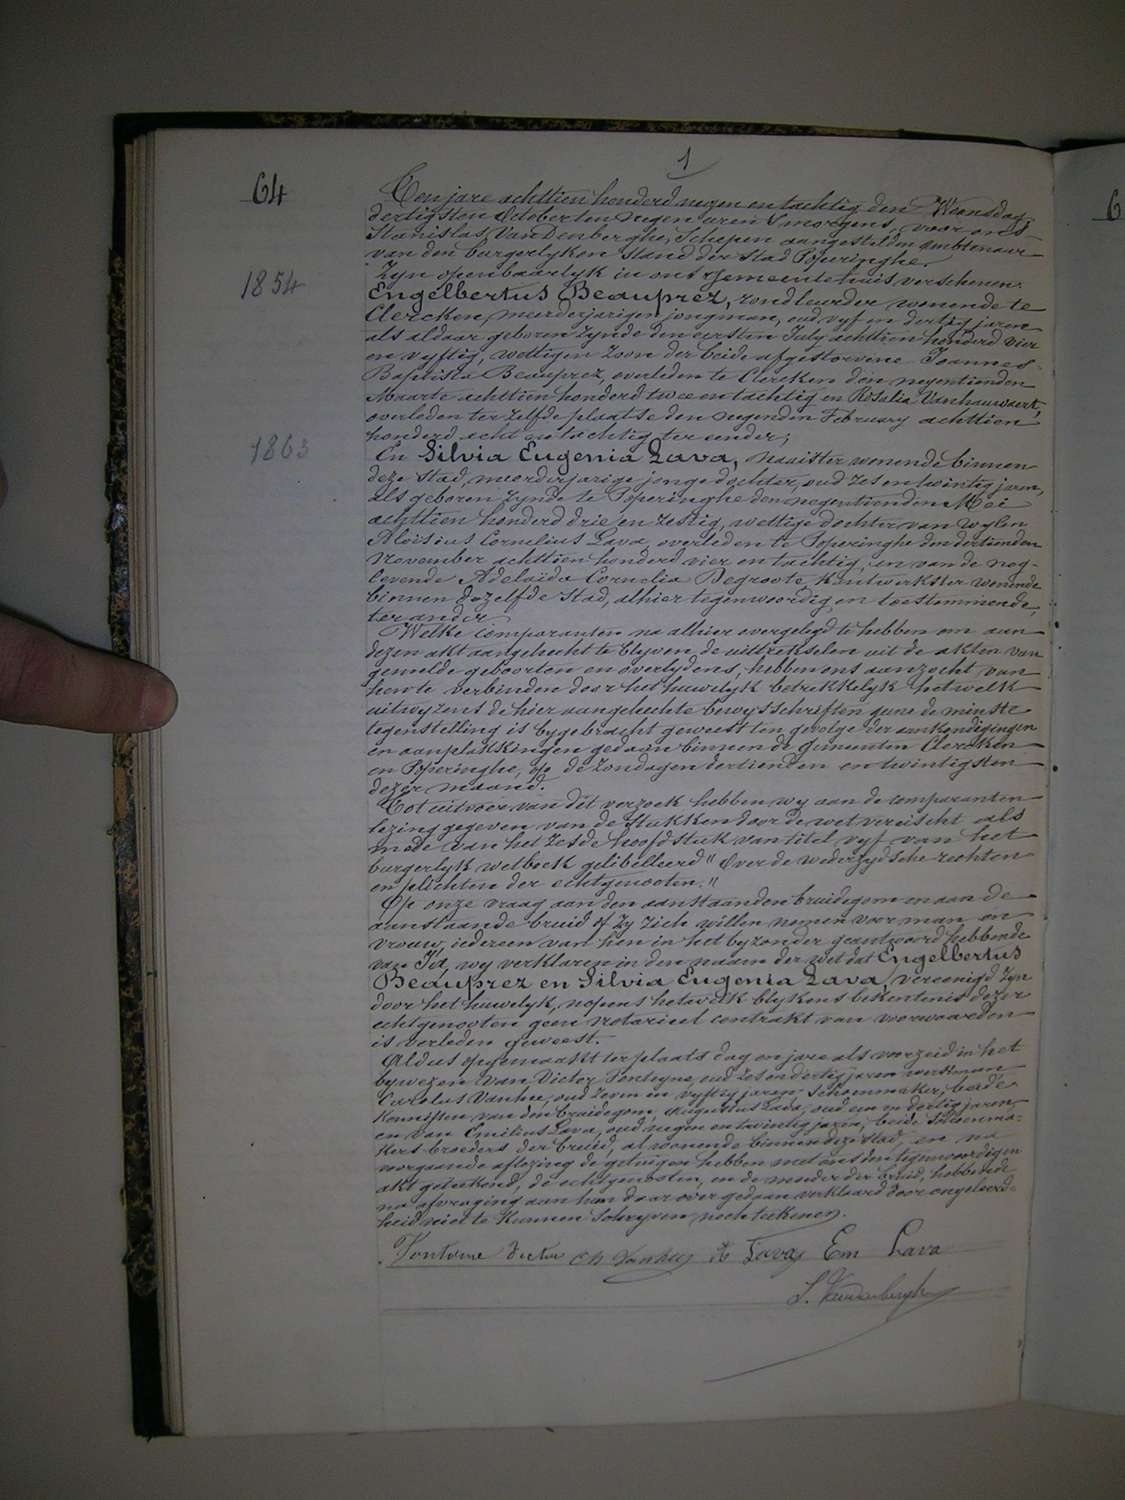 1
64
Ten jare achttien honderd negen en tachtig den Woensdag
dertigsten October ten negen uren 's morgens, voor ons
Stanislas VanDenberghe, Schepen aangestelden ambtenaar
van den burgerlyken stand der Stad Poperinghe.
Zyn openbaarlyk in ons gemeentehuis verschenen.
1854
Engelbertus Beauprez, rondleurder wonende te
Clercken, meerderjarigen jongman, oud vyf en dertig jaren
als aldaar geboren zynde den eersten July achttien honderd vier
en vyftig, wettigen zoon der beide afgestorvene Joannes-
Baptista Beauprez, overleden te Clercken den negentienden
Maarte achttien honderd twee en tachtig en Rosalia Vanhauwaert,
overleden ter zelfde plaatse den negenden February achttien
honderd acht en tachtig ter eender;
1863
En Silvia Eugenia Lava, naaister wonende binnen
deze Stad, meerderjarige jonge dochter, oud zes en twintig jaren,
als geboren zynde te Poperinghe den negentienden Mei
achttien honderd drie en zestig, wettige dochter van wylen
Aloisius Cornelius Lava, overleden te Poperinghe den dertienden
November achttien honderd vier en tachtig, en van de nog-
levende Adelaïda Cornelia Degroote, kantwerkster wonende
binnen dezelfde Stad, alhier tegenwoordig en toestemmende,
ter ander.
Welke comparanten na alhier overgelegd te hebben om aan
dezen akt aangehecht te blyven de uittrekselen uit de akten van
gemelde geboorten en overlydens, hebben ons aanzocht van
hen te verbinden door het huwelyk betrekkelyk hetwelk
uitwyzens de hier aangehechte bewysschriften gene de minste
tegenstelling is bygebracht geweest ten gevolge der aankondigingen
en aanplakkingen gedaan binnen de gemeenten Clercken
en Poperinghe, op de zondagen dertienden en twintigsten
dezer maand.
Tot uitvoer van dit verzoek hebben wy aan de comparanten
lezing gegeven van de stukken door de wet vereischt als
mede van het zesde hoofdstuk van titel vyf van het
burgerlyk wetboek gelibelleerd " Over de wederzydsche rechten
en plichten der echtgenooten. "
Op onze vraag aan den aanstaanden bruidegom en aan de
aanstaande bruid of zy zich willen nemen voor man en
vrouw, iedereen van hen in het byzonder geantwoord hebbende
van Ja, wy verklaren in den naam der wet dat Engelbertus
Beauprez en Silvia Eugenia Lava, vereenigd zyn
door het huwelyk, nopens hetwelk blykens bekentenis dezer
echtgenooten geen notarieel contrakt van voorwaarden
is verleden geweest.
Aldus opgemaakt ter plaats dag en jare als voorzeid in het
bywezen van Victor Fonteyne, oud zes en dertig jaren werkman
Carolus Vanhee, oud zeven en vyftig jaren Schoenmaker, beide
kennissen van den bruidegom, Augustus Lava, oud een en dertig jaren
en van Emilius Lava, oud negen en twintig jaren, beide Schoenma-
kers broeders der bruid, al wonende binnen deze stad, en na
voorgaande aflezing de getuigen hebben met ons den tegenwoordigen
akt geteekend, de echtgenooten, en de moeder der bruid, hebbende
na afvraging aan hun daar over gedaan verklaard door ongeleerd-
heid niet te kunnen Schryven noch teekenen.
Fonteine Victor Ch Vanhee Lava Em Lava
S. Vandenberghe